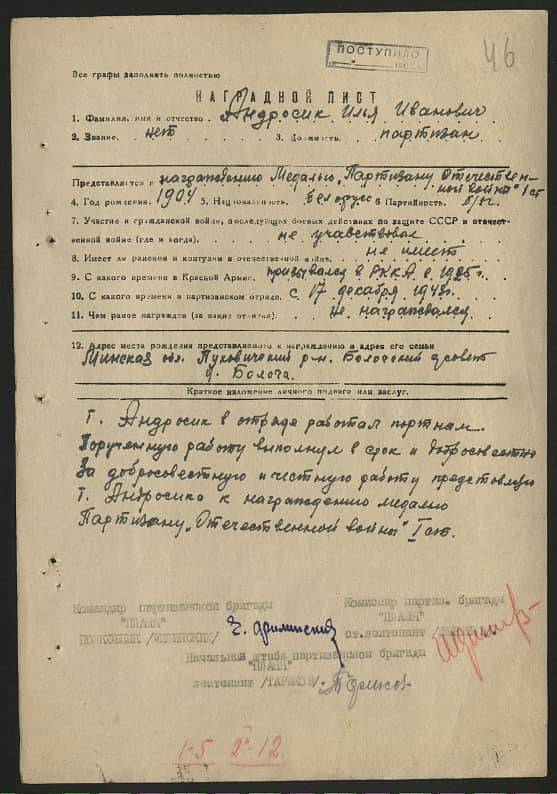 ПОСТУПИЛО
46
Все графы заполнять полностью
НАГРАДНОЙ ЛИСТ
1. Фамилия, имя и отчество Андросик Илья Иванович
2. Звание. нет 3. Должность. партизан
Представляется к награждению Медалью „Партизану Отечествен-
ной войны" I ст
4. Год рождения. 1904 5. Национальность. белорус 6 Партийность. б/п.
7. Участие в гражданской войне, последующих боевых действиях по защите СССР и отечест-
венной войне (где и когда). не учавствовал
8. Имеет ли ранения и контузии в отечественной войне. не имеет
9. С какого времени в Красной Армии. призывался в РККА с 1925 г.
10. С какого времени в партизанском отряде. с 17 декабря 1943г.
11. Чем ранее награжден (за какие отличия). Не награждался
12. Адрес места рождения представляемого к награждению и адрес его семьи
Минская обл. Пуховичский р-н. Болочский с/совет
д. Болоча.
Краткое изложение личного подвига или заслуг.
Т. Андросик в отряде работал портным.
Порученную работу выполнял в срок и добросовестно
За добросовестную и честную работу представляю
Т. Андросика к награждению медалью
Партизану „Отечественной войны" I ст.
Командир партизанской бригады
"ПЛАМЯ"
ПОЛКОВНИК
Комиссар партиз. бригады
"ПЛАМЯ"
ст. лейтенант
Начальник штаба партизанской бригады
"ПЛАМЯ"
лейтенант /ТАРАКОВ/
1-5 12.